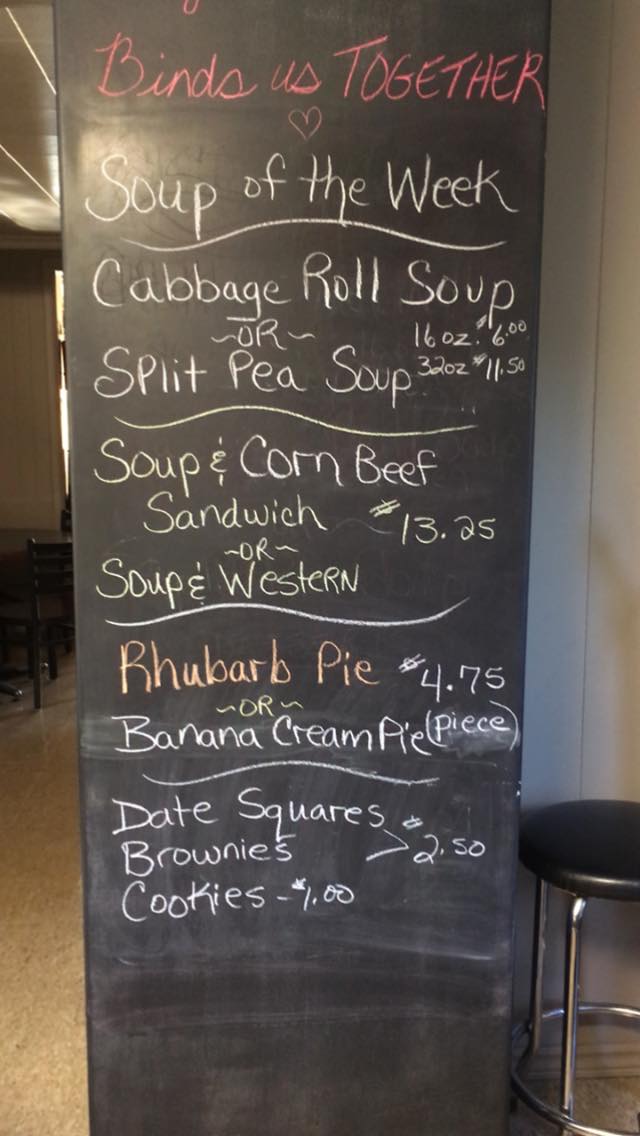 Binds us TOGETHER
Soup of the Week
Cabbage Roll Soup
~OR~ 16 oz. $6.00
Split Pea Soup 32oz $11.50
Soup & Corn Beef
Sandwich $13.25
~OR~
Soup & Western
Rhubarb Pie $4.75
~OR~
Banana Cream Pie (piece)
Date Squares
Brownies > $2.50
Cookies - $1.00